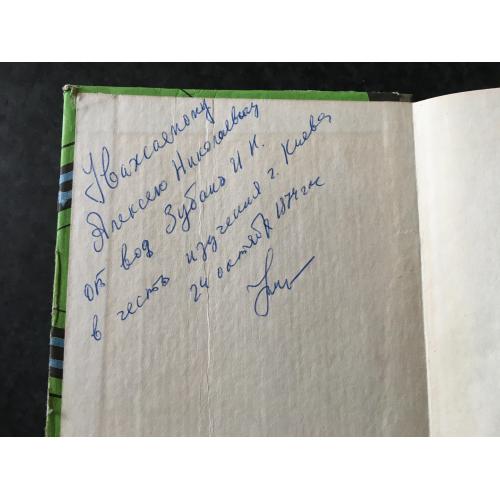 Уважаемому
Алексею Николаевичу
от вод Зубано И К.
в честь изучения г. Киева
24 октября 1974 г